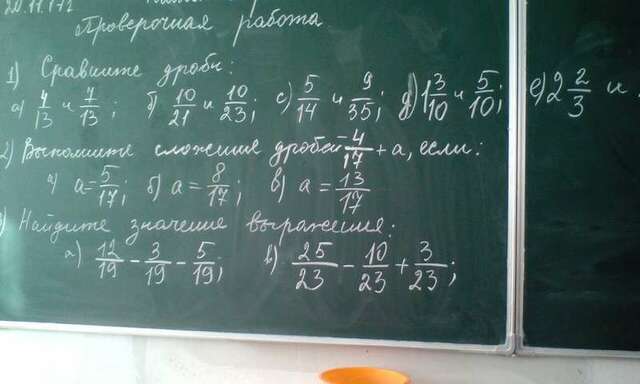 20.11.17г
Проверочная работа
1) Сравните дроби:
а) 4/13 и 7/13; б) 10/21 и 10/23; с) 5/14 и 9/35; д) 1 3/10 и 5/10; е) 2 2/3 и
2) Выполните сложение дробей 4/17 + а, если:
а) а = 5/17; б) а = 8/17; в) а = 13/17
) Найдите значение выражения:
а) 12/19 - 3/19 - 5/19; в) 25/23 - 10/23 + 3/23;